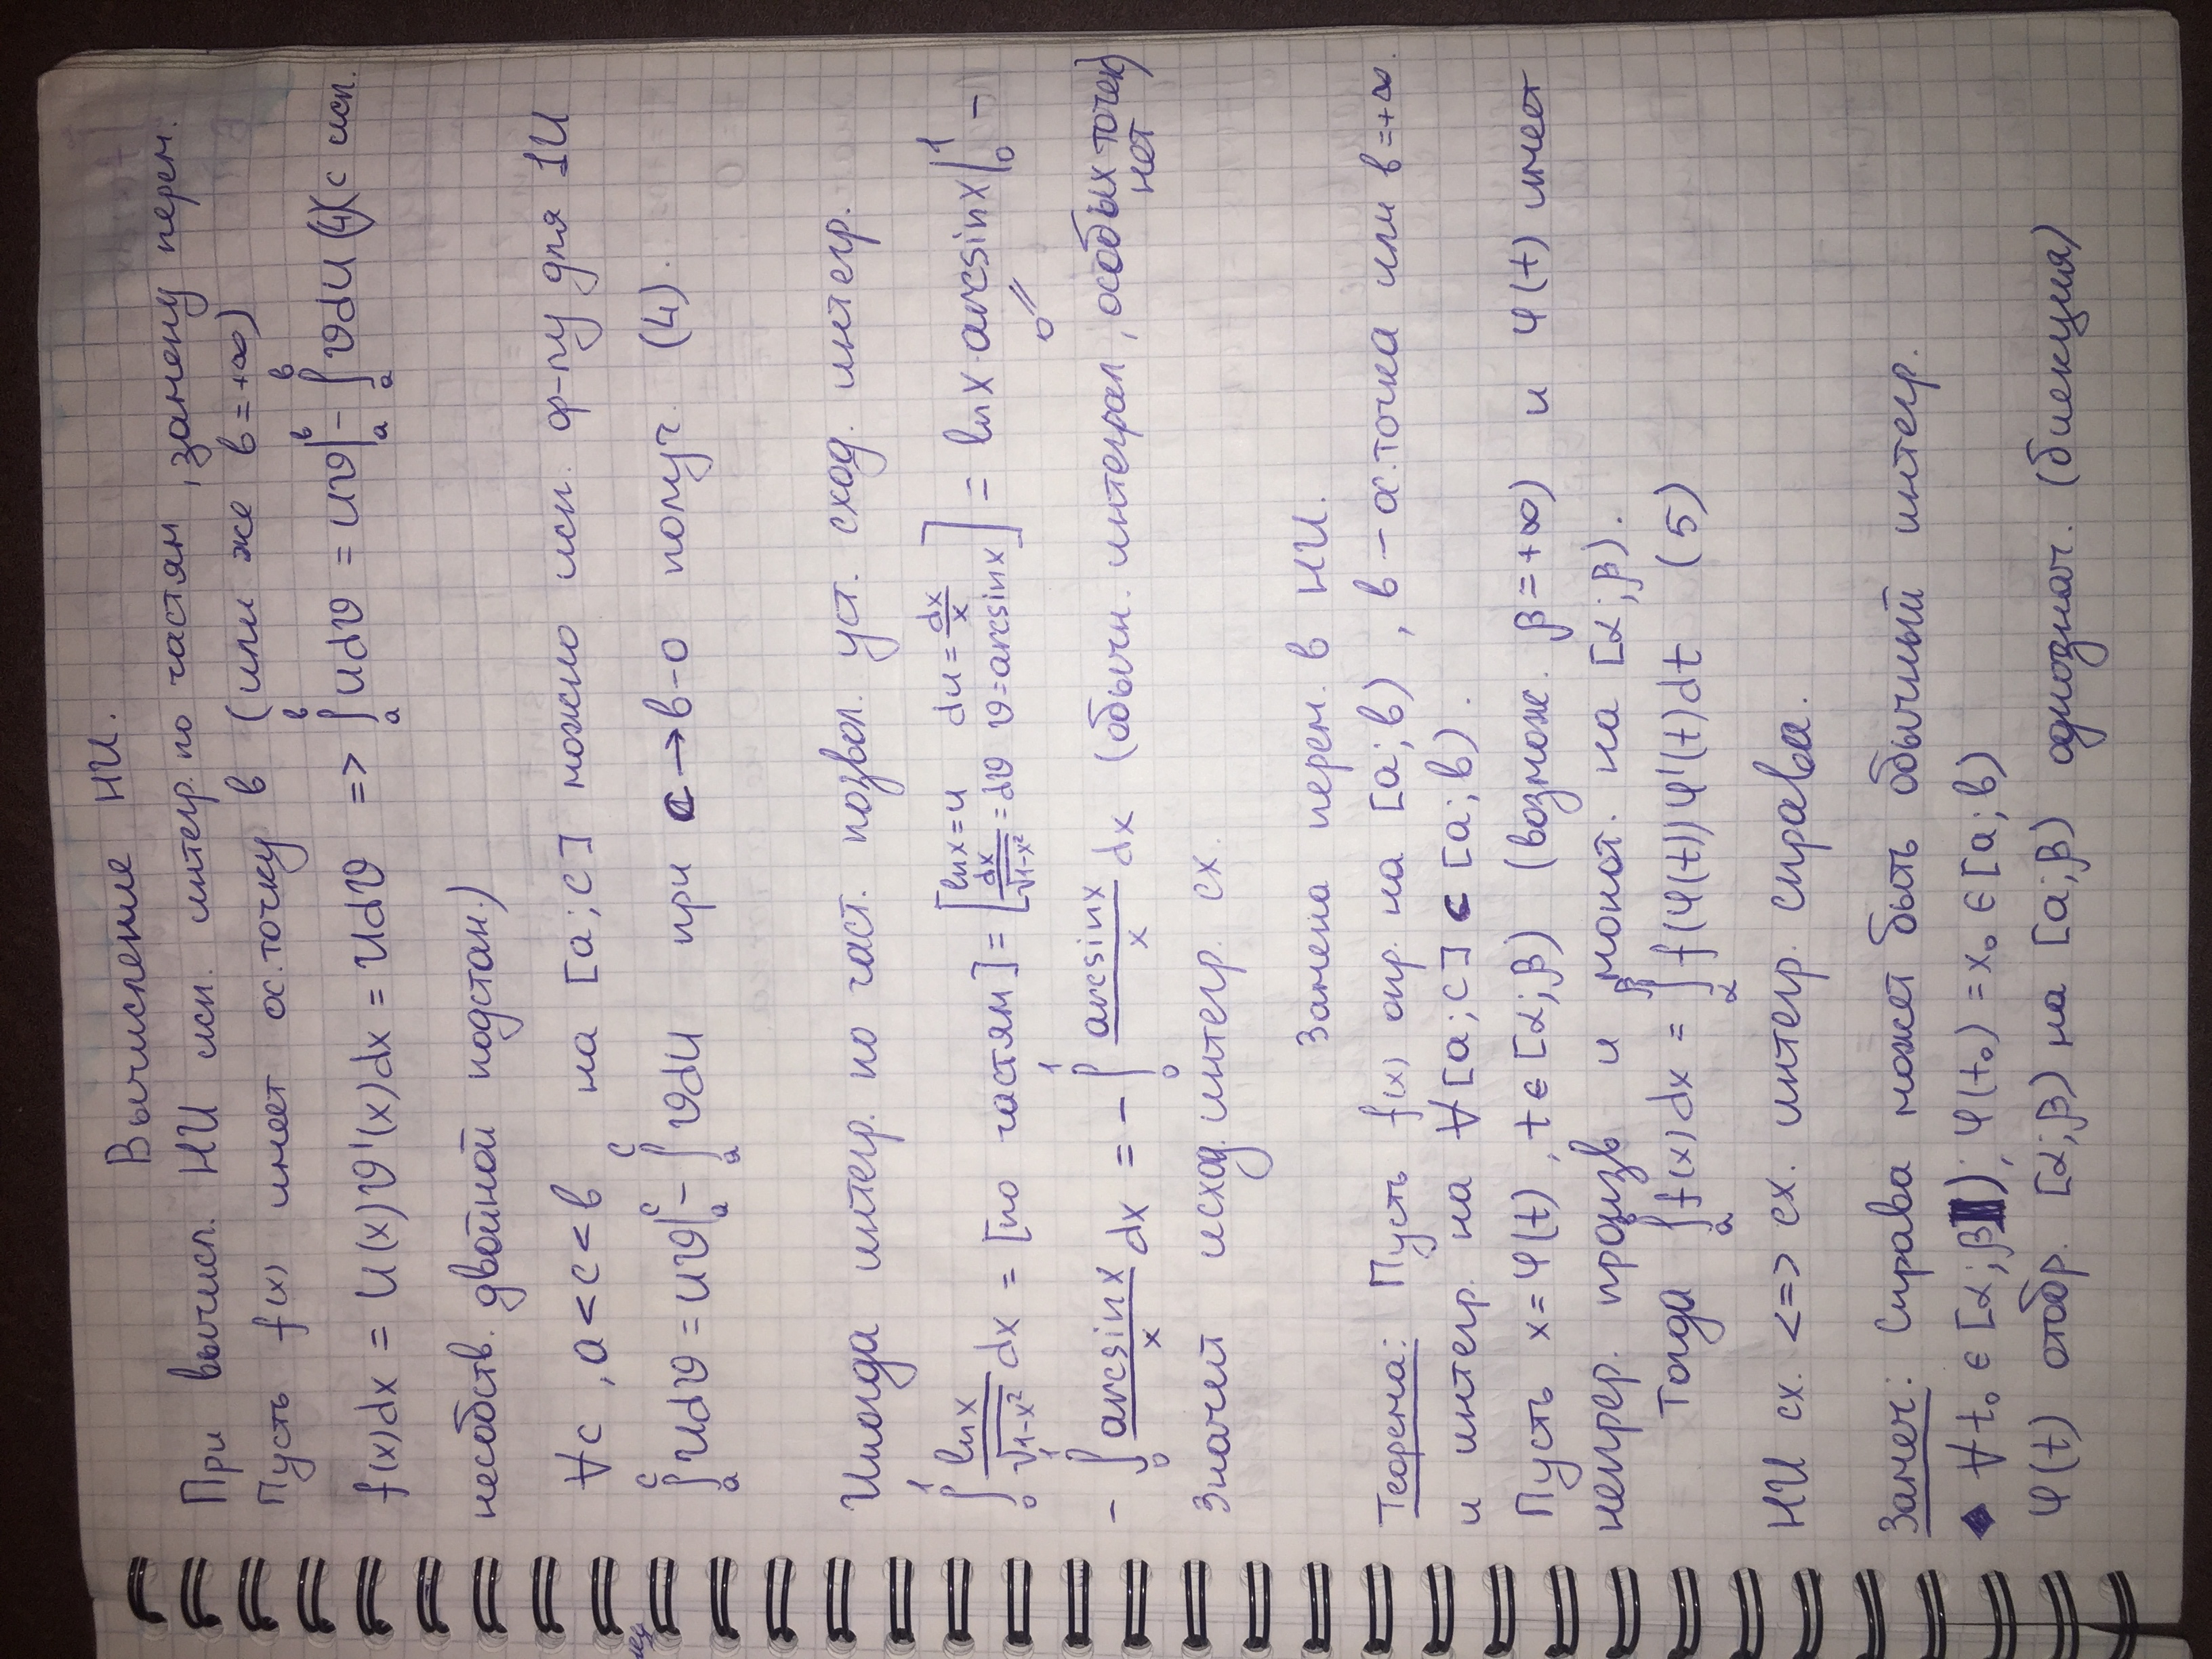 Вычисление НИ.
При вычисл. НИ исп. интегр. по частям, замену перем.
Пусть f(x) имеет ос. точку в (или же в = +∞)
f(x)dx = U(x)ϑ'(x)dx = Udϑ => ∫ₐᵇ Udϑ = Uϑ|ₐᵇ − ∫ₐᵇ ϑdU (4) (с исп.
несобств. двойной подстан.)
∀c, a<c<b на [a;c] можно исп. ф-лу для 1И
∫ₐᶜ Udϑ = Uϑ|ₐᶜ − ∫ₐᶜ ϑdU при c→b-0 получ. (4).
Иногда интегр. по част. позвол. уст. сход. интегр.
∫₀¹ lnx/√(1-x²) dx = [по частям] = [lnx=u du=dx/x dx/√(1-x²)=dϑ ϑ=arcsinx] = lnx·arcsinx|₀¹ −
0 =
− ∫₀¹ arcsinx/x dx = − ∫₀¹ arcsinx/x dx (обычн. интеграл, особых точек нет)
Значит исход. интегр. сх.
Замена перем. в НИ.
Теорема: Пусть f(x) опр. на [a;b), b – ос. точка или b=+∞.
и интегр. на ∀[a;c] ⊂ [a;b).
Пусть x=φ(t), t∈[α;β) (возмож. β=+∞) и φ(t) имеет
непрер. произв и монот. на [α;β).
Тогда ∫ₐᵇ f(x)dx = ∫_α^β f(φ(t))φ'(t)dt (5)
НИ сх. <=> сх. интегр. справа.
Замеч: Справа может быть обычный интегр.
◆ ∀t₀ ∈ [α;β); φ(t₀) = x₀ ∈ [a;b)
φ(t) отобр. [α;β) на [a;β) однознач. (биекция)